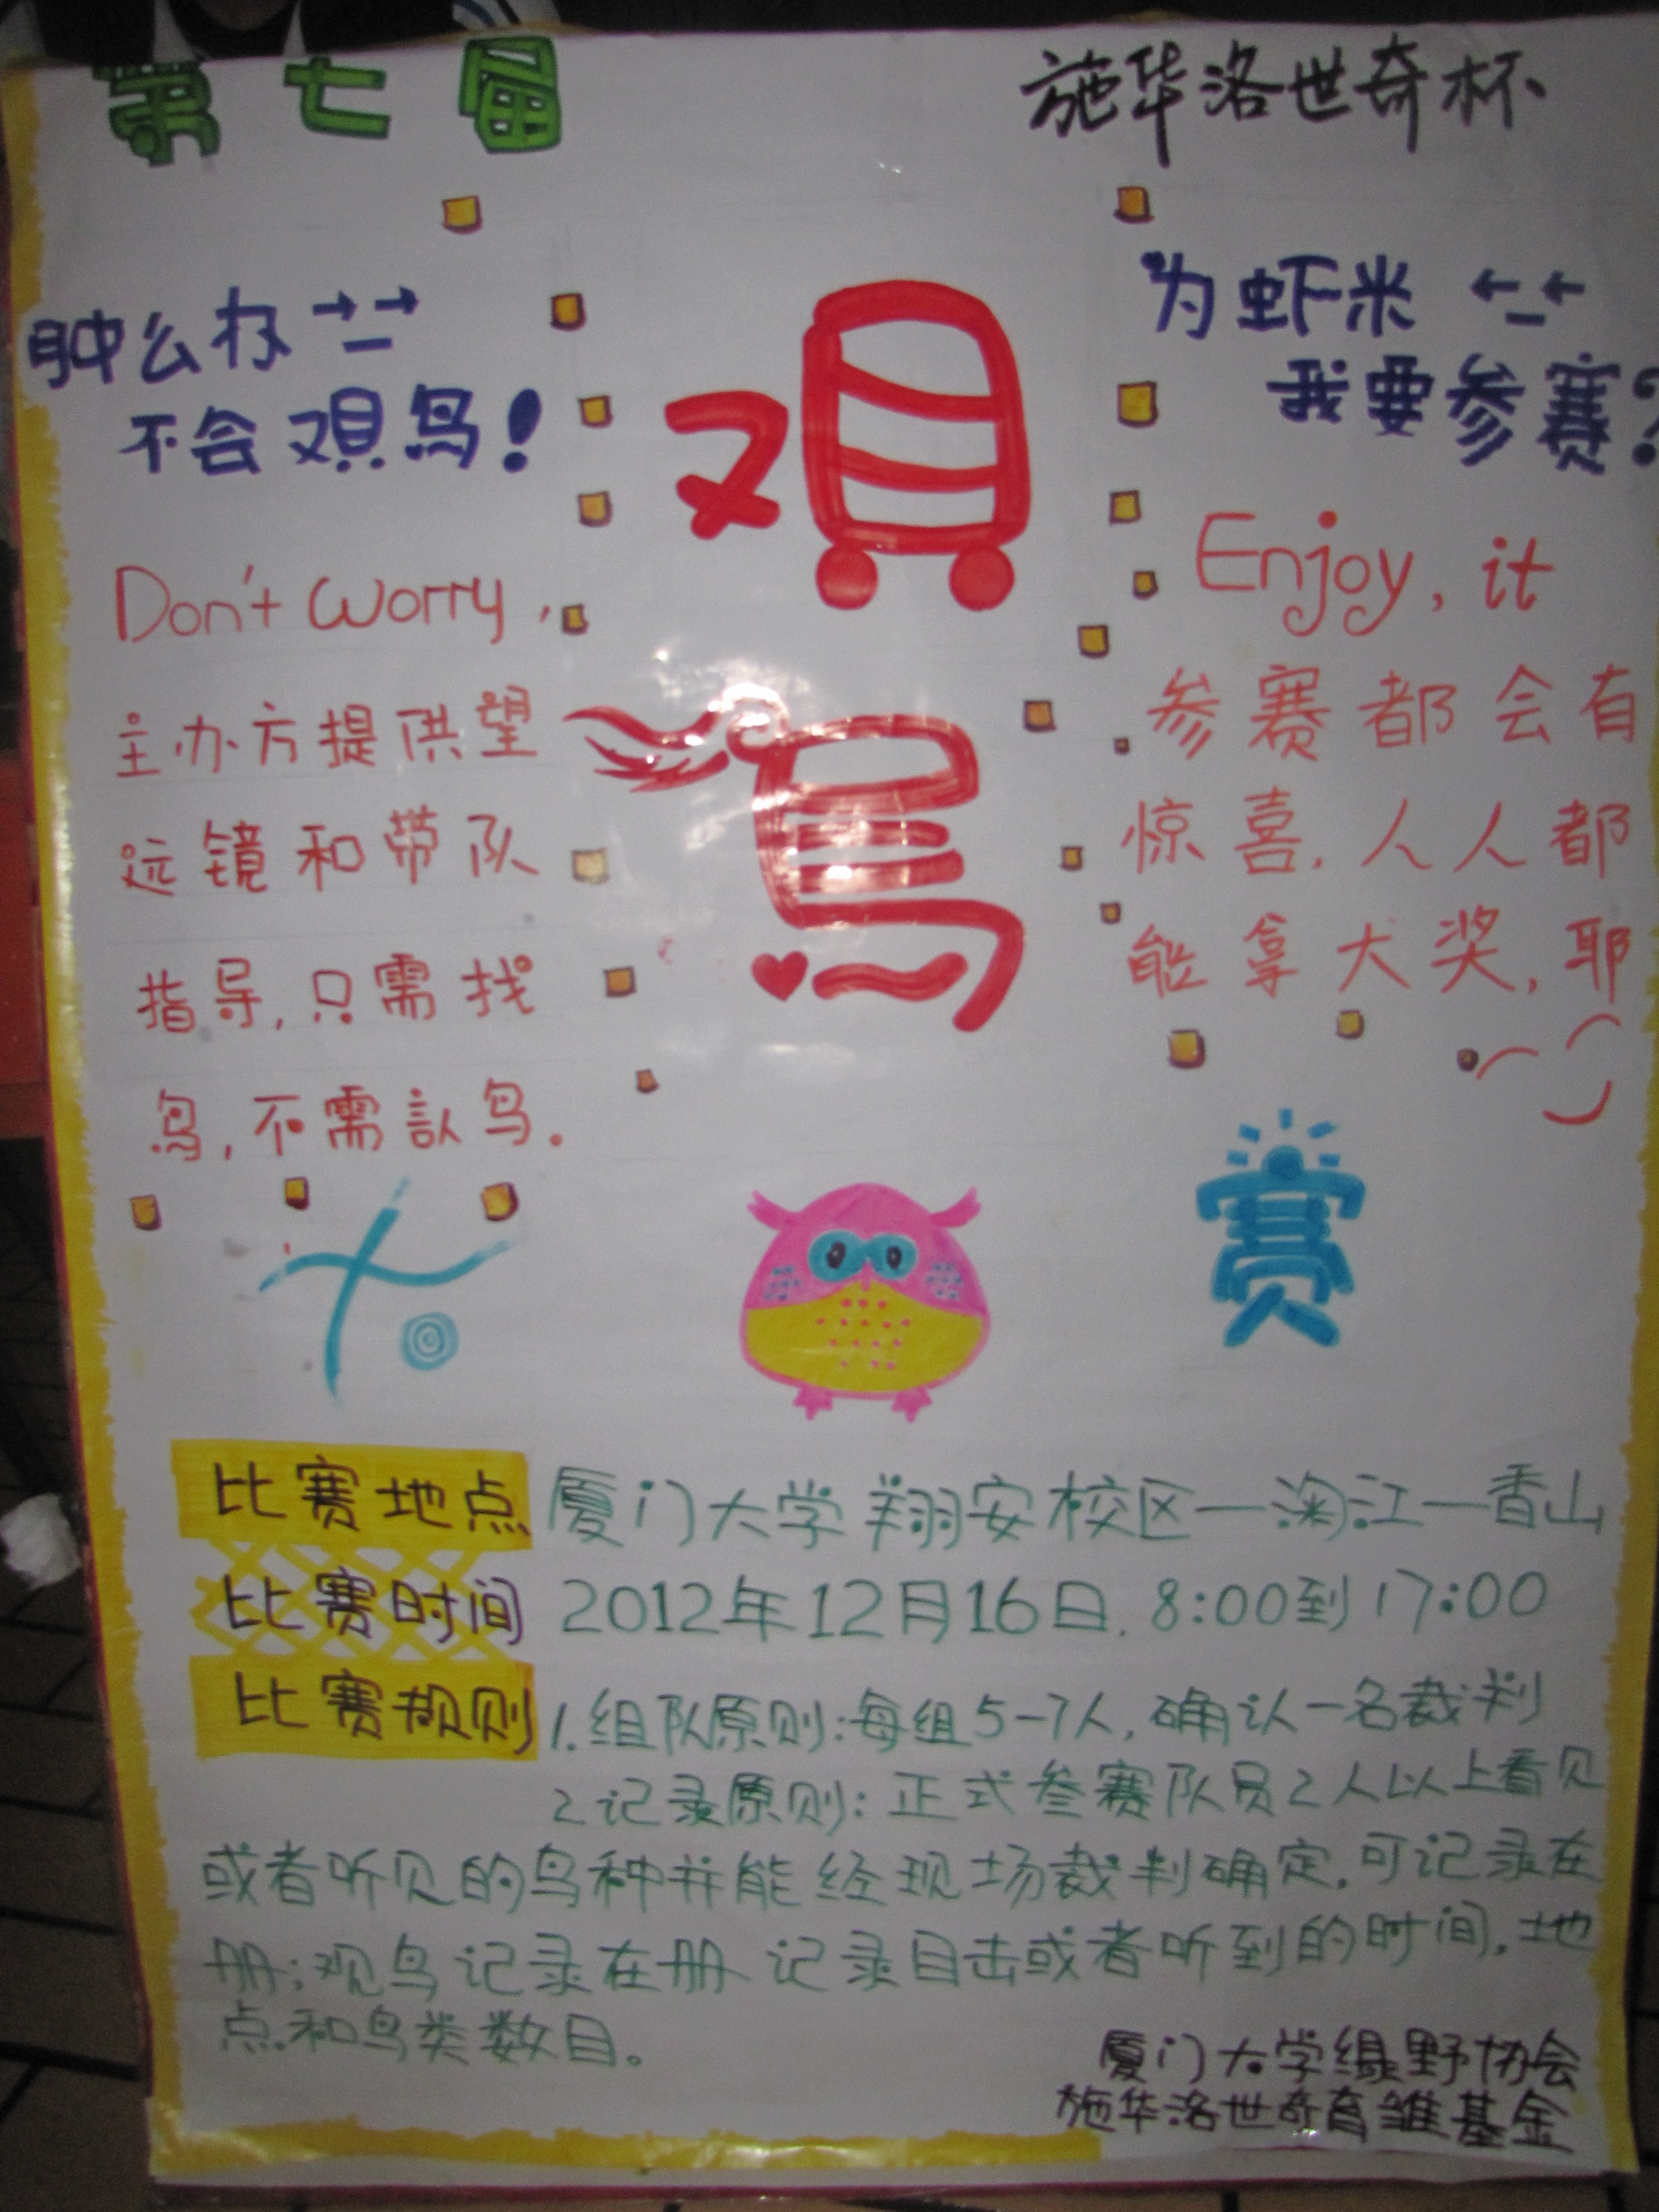 第七届
施华洛世奇杯
肿么办
不会观鸟！
Don't worry,
主办方提供望
远镜和带队
指导,只需找
鸟,不需認鸟.
观
鸟
为虾米
我要参赛?
Enjoy, it
参赛都会有
惊喜.人人都
能拿大奖,耶
大
赛
比赛地点 厦门大学翔安校区—澳江—香山
比赛时间 2012年12月16日. 8:00到17:00
比赛规则 1.组队原则:每组5-7人,确认一名裁判
2.记录原则:正式参赛队员2人以上看见
或者听见的鸟种并能经现场裁判确定.可记录在
册;观鸟记录在册 记录目击或者听到的时间,地
点和鸟类数目。
厦门大学绿野协会
施华洛世奇育雏基金